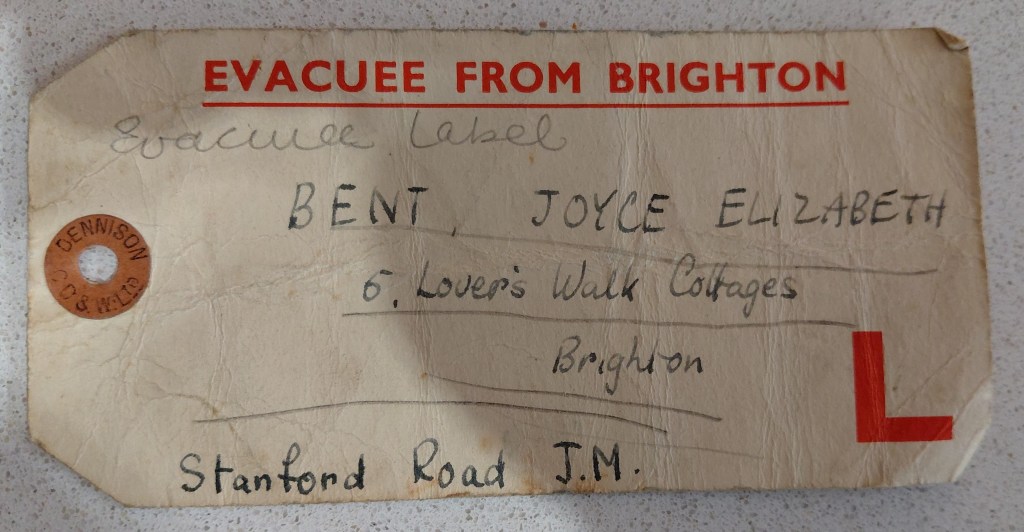 EVACUEE FROM BRIGHTON
Evacuee Label
BENT, JOYCE ELIZABETH
6. Lover's Walk Cottages
Brighton
L
Stanford Road J.M.
DENNISON
W. LTD